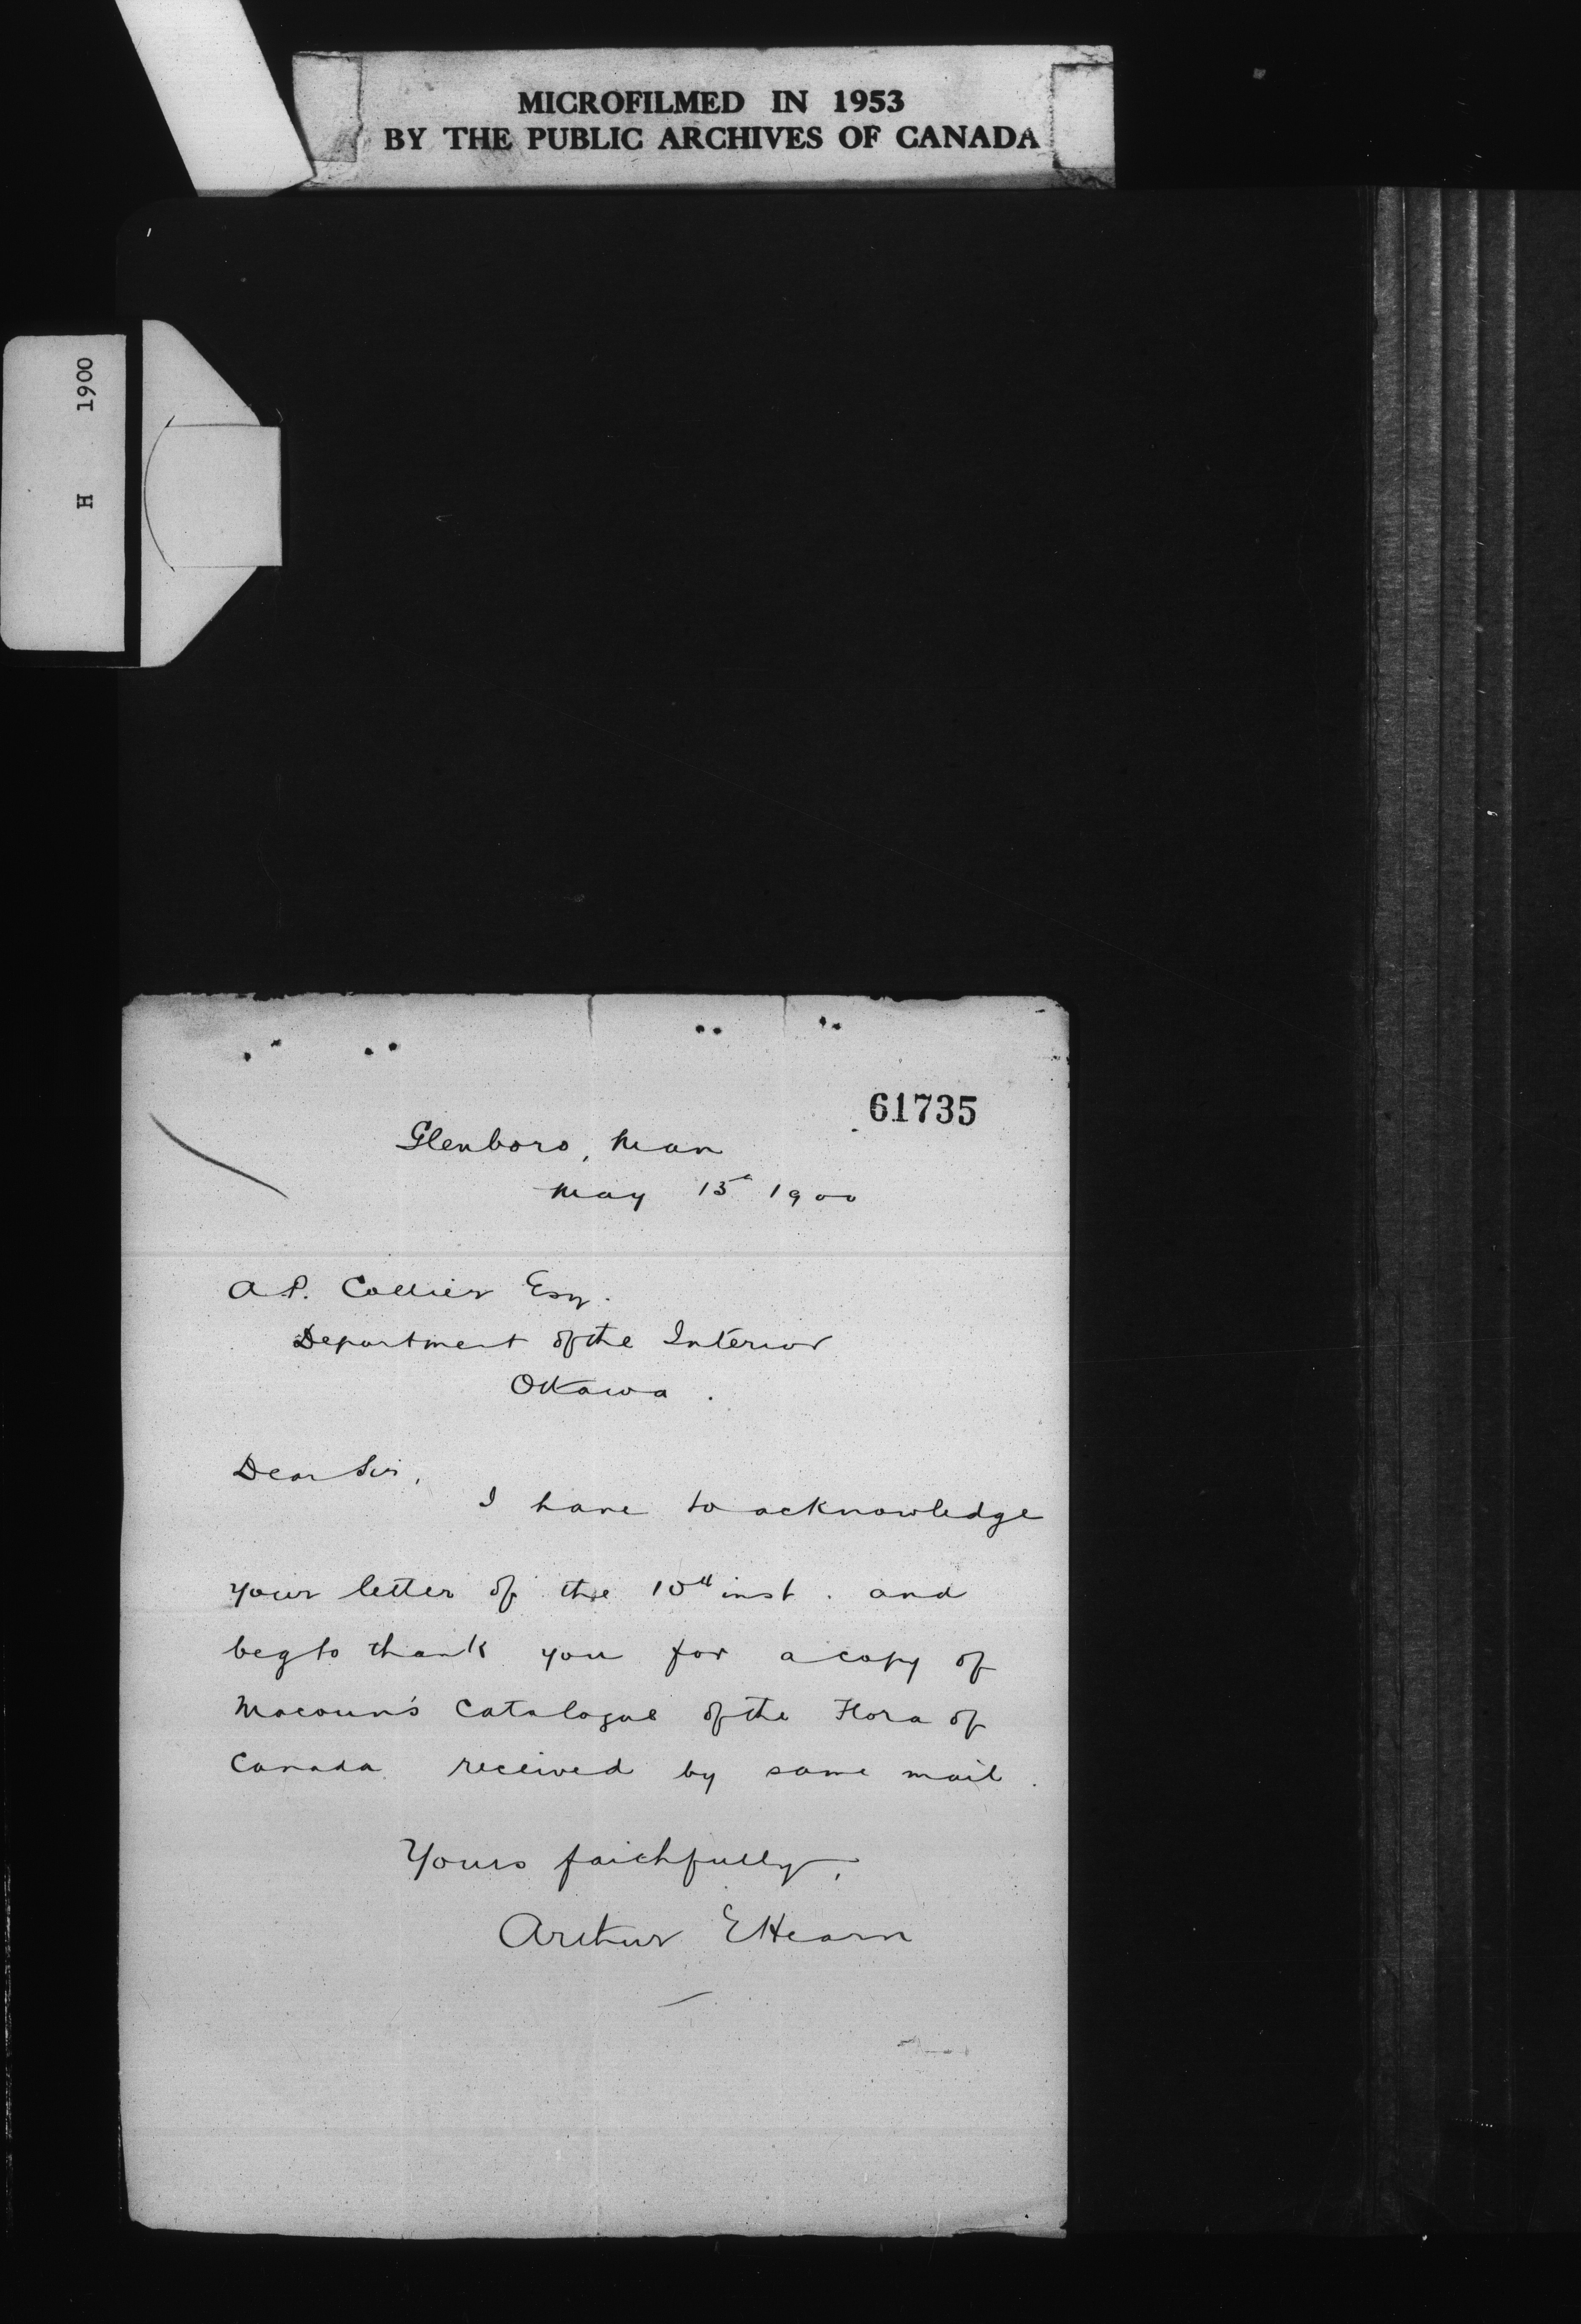 MICROFILMED IN 1953
BY THE PUBLIC ARCHIVES OF CANADA
H 1900
61735
Glenboro, Man
May 15th 1900
A.P. Collier Esq.
Department of the Interior
Ottawa.
Dear Sir,
I have to acknowledge
your letter of the 10th inst. and
beg to thank you for a copy of
Macoun's Catalogue of the Flora of
Canada received by same mail.
Yours faithfully,
Arthur E Hearn